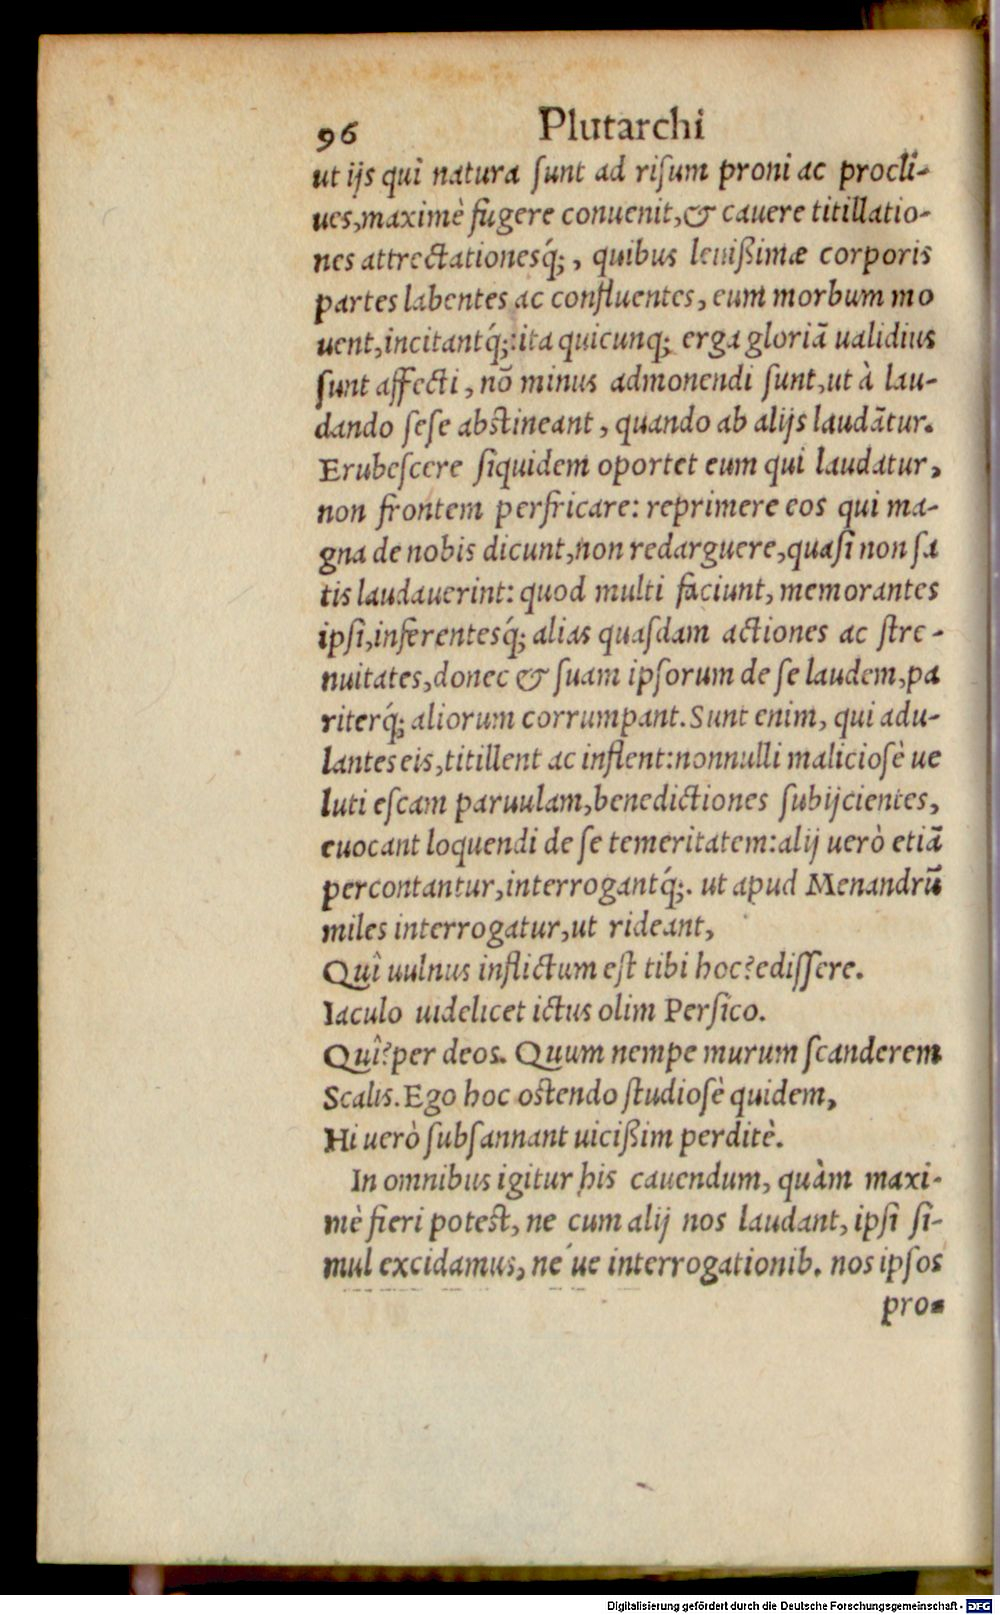 96 Plutarchi
ut ijs qui natura ſunt ad riſum proni ac procli-
ues,maximè fugere conuenit,& cauere titillatio-
nes attrectationesq́;, quibus leuißimæ corporis
partes labentes ac confluentes, eum morbum mo
uent,incitantq́;:ita quicunq; erga gloriã ualidius
ſunt affecti, nõ minus admonendi ſunt,ut à lau-
dando ſeſe abſtineant, quando ab alijs laudãtur.
Erubeſcere ſiquidem oportet eum qui laudatur,
non frontem perfricare: reprimere eos qui ma-
gna de nobis dicunt,non redarguere,quaſi non ſa
tis laudauerint: quod multi faciunt, memorantes
ipſi,inferentesq́; alias quaſdam actiones ac ſtre-
nuitates,donec & ſuam ipſorum de ſe laudem,pa
riterq́; aliorum corrumpant. Sunt enim, qui adu-
lantes eis,titillent ac inflent:nonnulli malicioſè ue
luti eſcam paruulam,benedictiones ſubijcientes,
euocant loquendi de ſe temeritatem:alij uerò etiã
percontantur,interrogantq́;. ut apud Menandrũ
miles interrogatur,ut rideant,
Quî uulnus inflictum eſt tibi hoc?ediſſere.
Iaculo uidelicet ictus olim Perſico.
Quî?per deos. Quum nempe murum ſcanderem
Scalis. Ego hoc oſtendo ſtudioſè quidem,
Hi uerò ſubſannant uicißim perditè.
In omnibus igitur his cauendum, quàm maxi-
mè fieri poteſt, ne cum alij nos laudant, ipſi ſi-
mul excidamus, ne ́ue interrogationib. nos ipſos
pro-
Digitalisierung gefördert durch die Deutsche Forschungsgemeinschaft - DFG